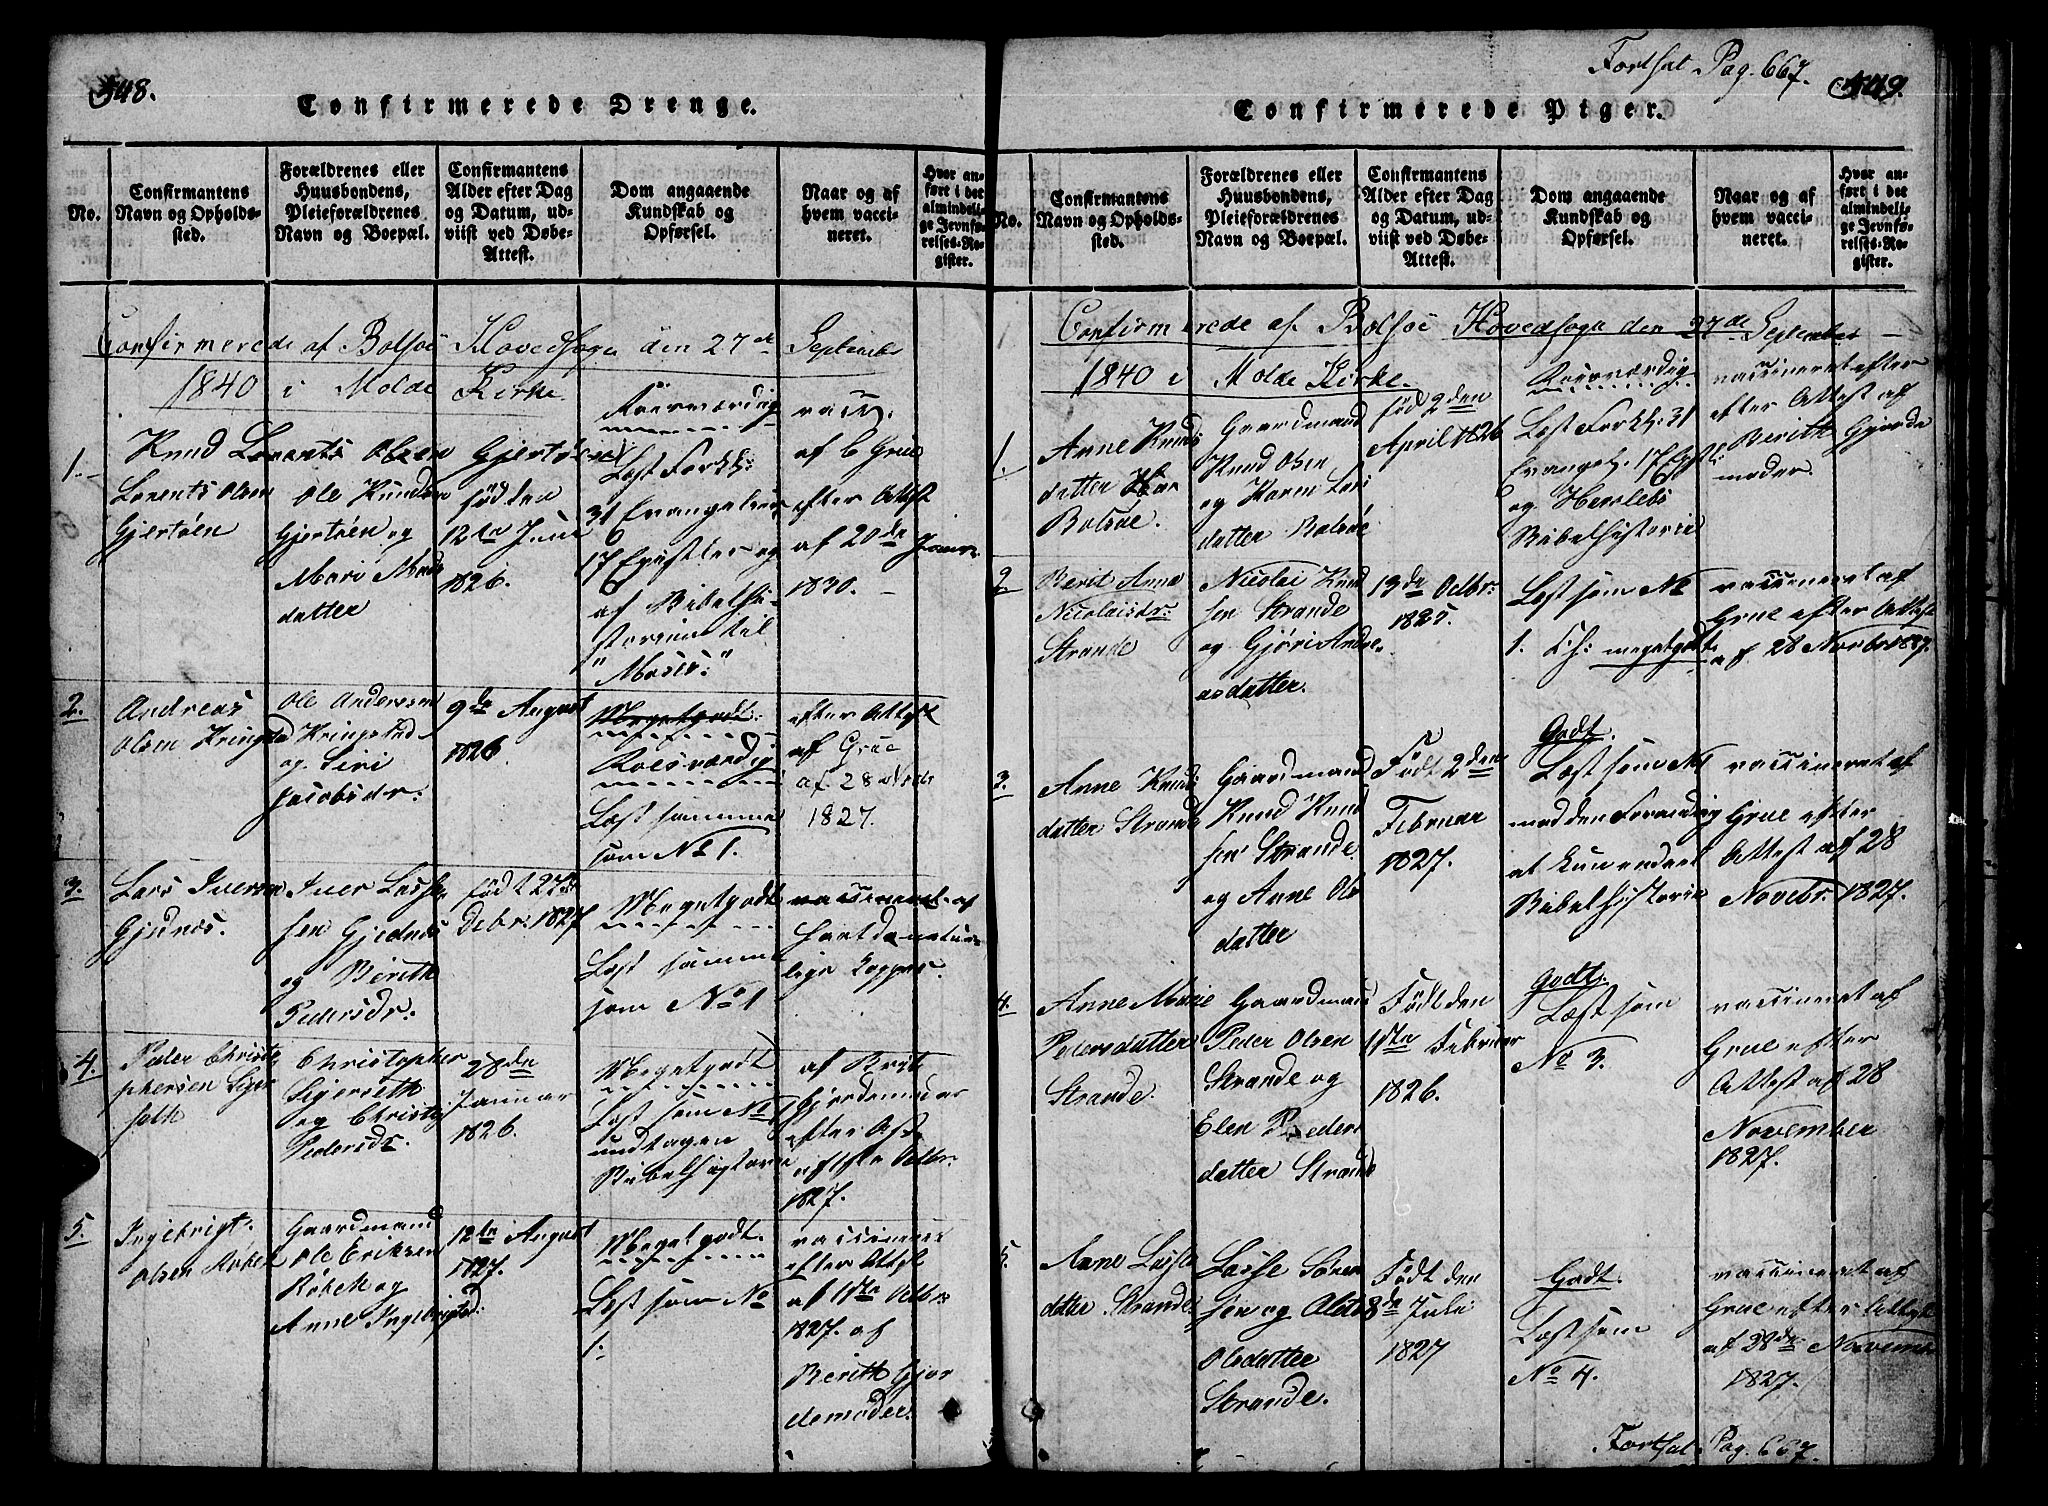 548.
Confirmerede Drenge.
No.
Confirmantens
Navn og Opholds-
sted.
Forældrenes eller
Huusbondens,
Pleieforældrenes
Navn og Boepæl.
Confirmantens
Alder efter Dag
og Datum, ud-
viist ved Døbe-
Attest.
Dom angaaende
Kundskab og
Opførsel.
Naar og af
hvem vacci-
neret.
Hvor an-
ført i det
almindeli-
ge Jevnfø-
relses-Re-
gister.
Confirmerede af Bolsöe Hovedsogn den 27de September
1840 i Molde Kirke.
1.
Knud
Lorents Olsen
Gjertöen
Ole Knudsen
Gjertöen og
Mari Mads
datter
född den
12te Juni
1826.
Roesværdig
Læst Forkl:
31 Evangelier
17 Epistler og
af Bibelhi-
storien til
"Moses:"
vacc.
af C Grue
efter Attest
af 20de Janu.
1830.
2.
Andreas
Olsen Kringstad
Ole Andersen
Kringstad
og Siri
Jacobsdr:
9de August
1826
Meget godt:
Roesværdig
Læst samme
som No 1.
efter Attest
af Grue
af 28
1827.
3.
Lars Iversen
Gjednæs.
Iver Lasse
sen Gjednæs
og Berith
Pedersdr:
född 27de
Debr. 1827
Meget godt
Læst samme
som No 1
vaccineret af
havt de natur-
lige Kopper.
4.
Peder Christo
phersen Siger
seth
Christopher
Sigerseth
og
Pedersdr.
28de
Januar
1826.
Meget godt
Læst som No 1
undtagen
Bibelhistorie
af Berit
Gjordemoder
efter Att.
af 1ste Octbr.
1827.
5.
Ingebrigt
Olsen Röbek
Gaardmand
Ole Eriksen
Röbek og
Anne Ingebrigtsd:
12te August
1827.
Meget godt.
Læst som No
1.
vaccineret
efter Attest
af 1ste Octbr.
1827. af
Berith Gjor
demoder.
Fortsat Pag. 667.
549.
Confirmerede Piger.
No.
Confirmantens
Navn og Opholds-
sted.
Forældrenes eller
Huusbondens,
Pleieforældrenes
Navn og Boepæl.
Confirmantens
Alder efter Dag
og Datum, ud-
viist ved Døbe-
Attest.
Dom angaaende
Kundskab og
Opførsel.
Naar og af
hvem vacci-
neret.
Hvor an-
ført i det
almindeli-
ge Jevnfø-
relses-Re-
gister.
Confirmerede af Bolsöe Hovedsogn den 27de September
1840 i Molde Kirke.
1.
Anne Knuds
datter
Bolsöe.
Gaardmand
Knud Olsen
og Karen Lars
datter Bolsöe
född 2den
April 1826
Roesværdig
Læst Forkl: 31
Evangel. 17 Epistl:
og Herslebs
Bibelhistorie
vaccineret efter
efter Attest af
Berith Gjorde
moder.
2.
Berit Anne
Nicolaisdr:
Strande
Nicolai Knud
sen Strande
og Gjöri Andre
asdatter.
13de Octbr:
1825.
Læst som No
1. Ch: meget godt.
vaccineret af
Grue efter Attest
af 28 Novbr 1827.
3.
Anne Knuds
datter Strande
Gaardmand
Knud Knud
sen Strande
og Anne Ols
datter
Födt 2den
Februar
1827.
Godt.
Læst som No 1
med den Forandring
at kun endeel
Bibelhistorie
vaccineret af
Grue efter
Attest af 28
Novebr. 1827.
4.
Anne Marie
Pedersdatter
Strande.
Gaardmand
Peder Olsen
Strande og
Elen Peders
datter Strande
Födt den
Februar
1826.
Godt.
Læst som
No 3.
vaccineret af
Grue efter
Attest af 28
November
1827.
5.
Anne Lasse
datter Strande
Lasse Sören
sen og
Olsdatter
Strande.
Födt den
8de Juli
1827
Godt.
Læst som
No 4.
vaccineret af
Grue efter Attest
af 28de November
1827.
Fortsat Pag. 667.